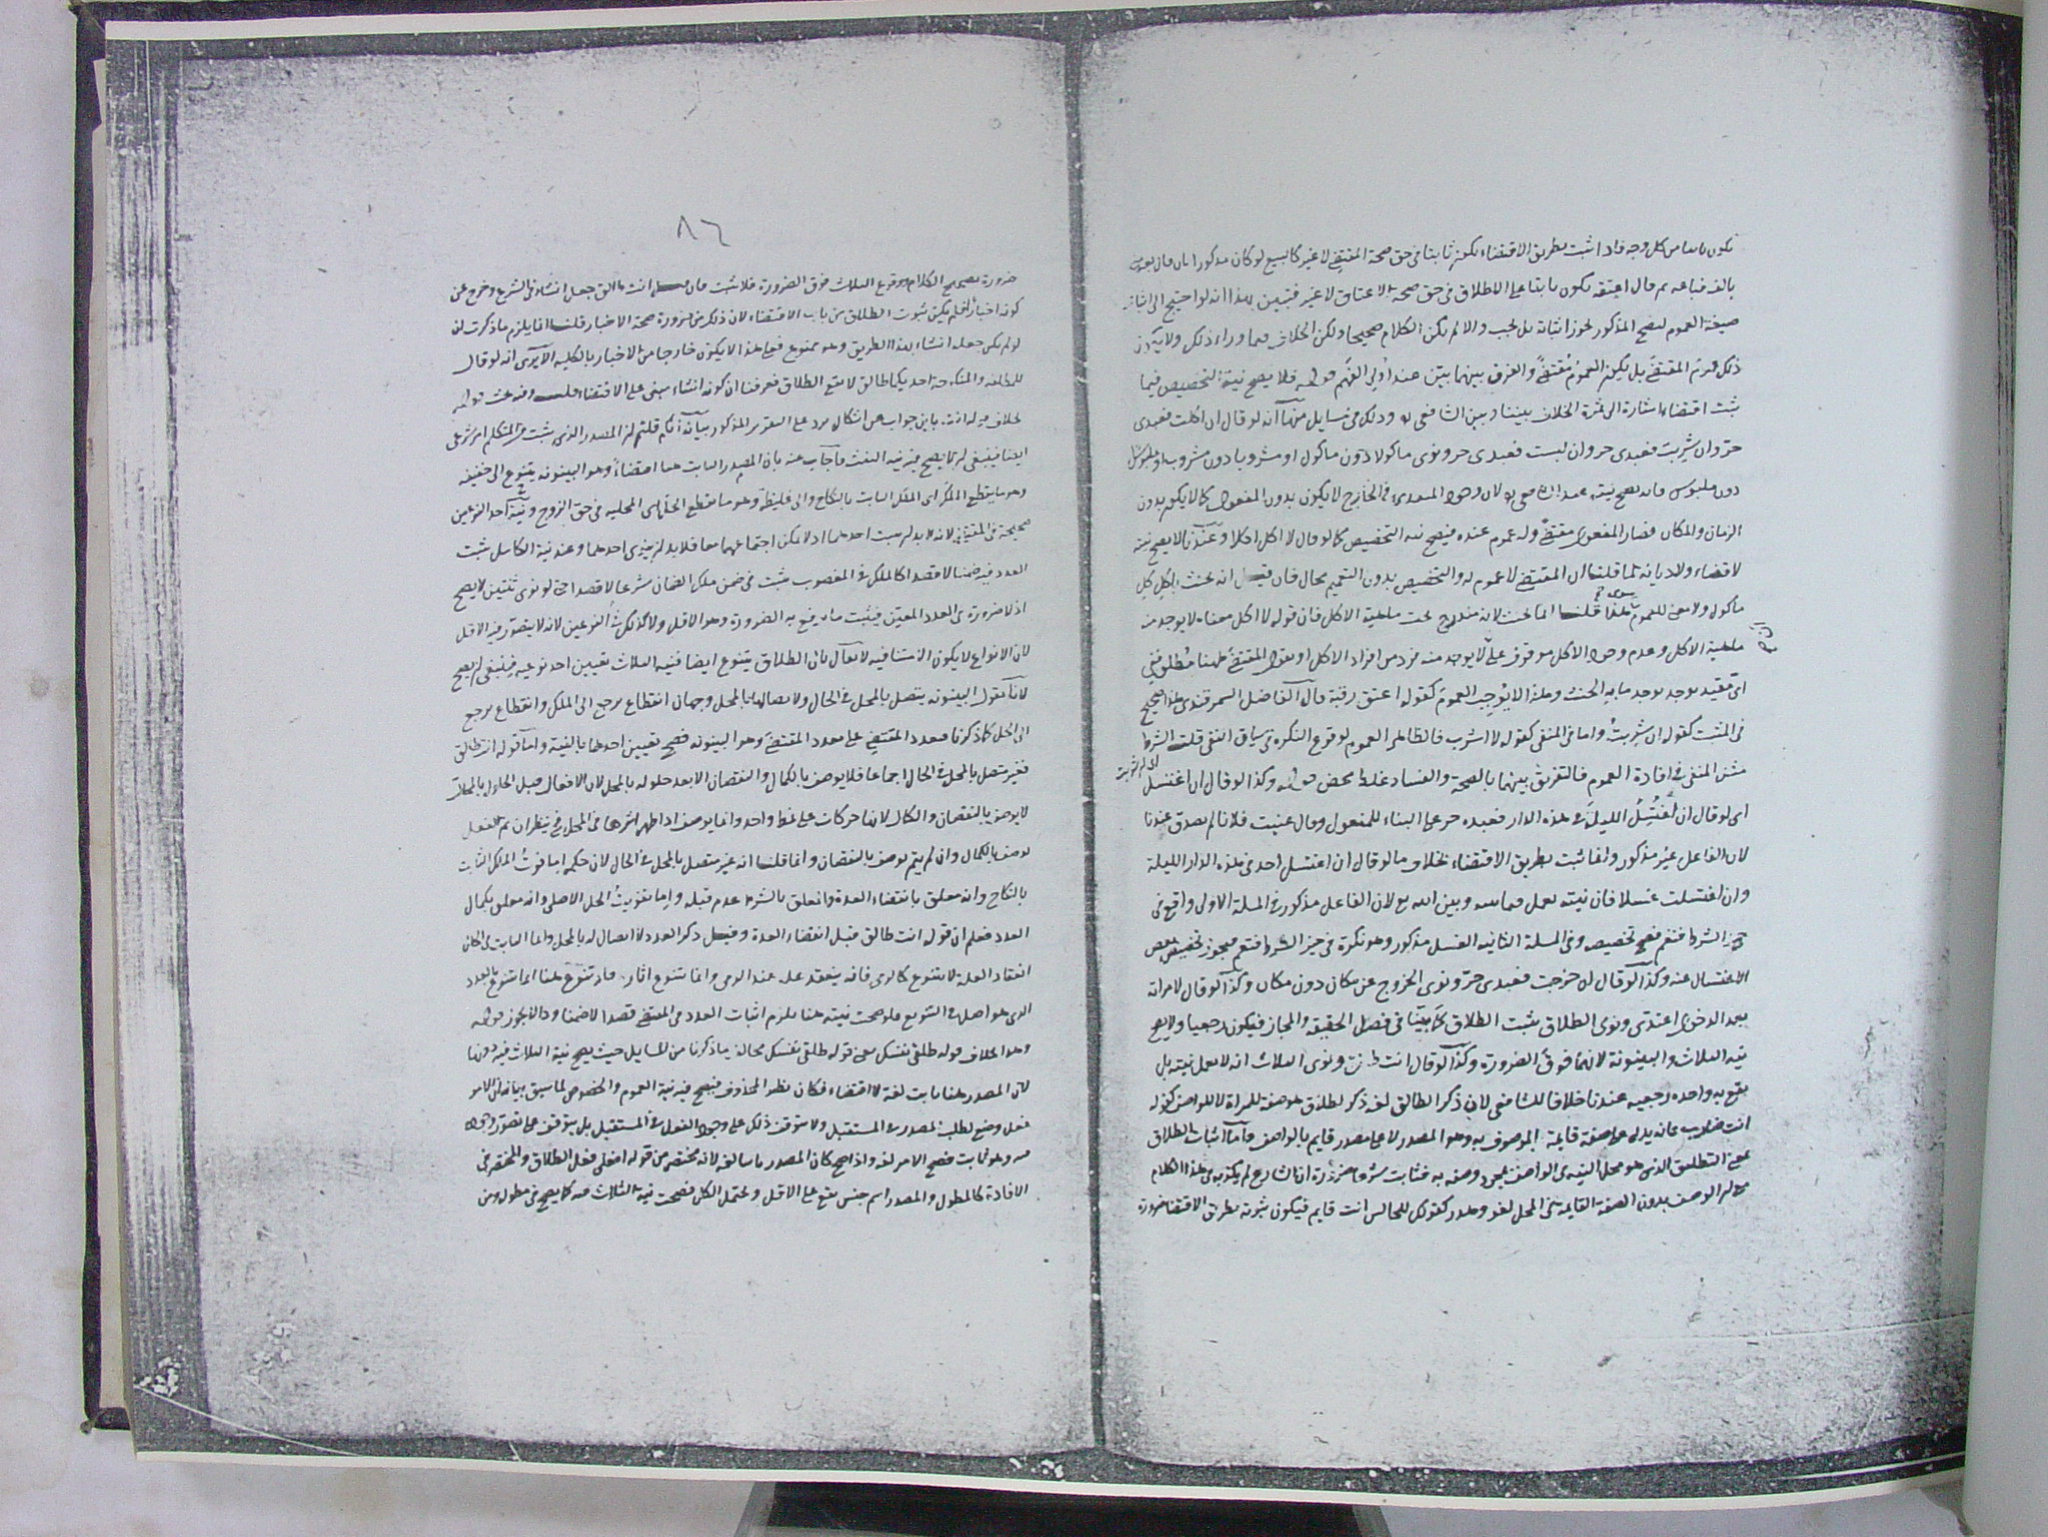 يكون ثابتا من كل وجه فاذا ثبت بطريق الاقتضاء يكون ثابتا في حق صحة المقتضي لا غير كالبيع لو كان مذكورا بان قال بعت
بالف فباعه ثم قال اعتقه يكون ثابتا على الاطلاق في حق صحة الاعتاق لا غير فتبين بهذا انه لو احتيج الى اثبات
صيغة العموم ليصح المذكور يجوز اثباته بل يجب والا لم يكن الكلام صحيحا ولكن الخلاف فيما وراء ذلك ولا يكون
ذلك المقتضى بل يكون العموم مقتضى والفرق بينهما بين عند اولي الفهم قوله فلا يصح نية التخصيص فيما
ثبت اقتضاء اشارة الى ثمرة الخلاف بيننا وبين الشافعي وذلك في مسايل منها انه لو قال ان اكلت فعبدي
حر وان شربت فعبدي حر وان لبست فعبدي حر ونوى ماكولا دون ماكول او مشروبا دون مشروب او ملبوسا
دون ملبوس فانه يصح نيته عند الشافعي لان وجود المتعدي في الخارج لا يكون بدون المفعول كما لا يكون بدون
الزمان والمكان فصار المفعول مقتضى وله عموم عنده فيصح نية التخصيص كما لو قال لا اكل اكلا وعندنا لا يصح نيته
لا قضاء ولا ديانة لما قلنا ان المقتضى لا عموم له والتخصيص بدون التعميم محال فان قيل انه يحنث باكل كل
ماكول ولا معنى للعموم سوى هذا قلنا انما يحنث لانه مندرج تحت ماهية الاكل فان قوله لا اكل معناه لا يوجد منه
ماهية الاكل وعدم وجود الاكل موقوف على لا يوجد منه فرد من افراد الاكل او نقول المقتضى ههنا مطلق ففي
اي مقيد يوجد يوجد ما به الحنث وهذا لا يوجب العموم كقوله اعتق رقبة قال الفاضل السمرقندي هذا صحيح
في المثبت كقوله ان شربت واما في المنفي كقوله لا اشرب فالظاهر العموم لوقوع النكرة في سياق النفي قلت الشرط
مثل المنفي في افادة العموم فالتفريق بينهما بالصحة والفساد غلط محض قوله وكذا لو قال ان اغتسل
اي لو قال ان اغتسل الليلة في هذه الدار فعبده حر على البناء للمفعول وقال عنيت فلانا لم يصدق عندنا
لان الفاعل غير مذكور وانما ثبت بطريق الاقتضاء بخلاف ما لو قال ان اغتسل احد في هذه الدار الليلة
وان اغتسلت غسلا فان نيته تعمل فيما بينه وبين الله تع لان الفاعل مذكور في المسلة الاولى واقع في
حيز الشرط فتعم فصح تخصيصه وفي المسلة الثانية الغسل مذكور وهو نكرة في حيز الشرط فتعم فيجوز تخصيص بعض
الاغتسال عنه وكذا لو قال ان خرجت فعبدي حر ونوى الخروج عن مكان دون مكان وكذا لو قال لامراته
بعد الدخول اعتدي ونوى الطلاق يثبت الطلاق كما بينا في فصل الحقيقة والمجاز فيكون رجعيا ولا يصح
نية الثلاث والبينونة لانها فوق الضرورة وكذا لو قال انت طالق ونوى الثلاث انه لا يعمل نيته بل
يقع به واحدة رجعية عندنا خلافا للشافعي لان ذكر الطالق لغة ذكر لطلاق هو صفة للمراة لا للواصف كقوله
انت ضارب فانه يدل على صفة قايمة الموصوف به وهو المصدر لا على مصدر قايم بالواصف واما اثبات الطلاق
بمعنى التطليق الذي هو فعل الواصف بمجرد وصفه به فثابت شرعا ضرورة
الوصف بدون الصفة القايمة في المحل لغو وهدر كقولك للجالس انت قايم فيكون ثبوته بطريق الاقتضاء ضرورة
٨٦
ضرورة تصحيح الكلام ووقوع الثلاث فوق الضرورة فلا يثبت فان قيل انت طالق جعل انشاء في الشرع وخرج عن
كونه اخبارا فلم يكن ثبوت الطلاق من باب الاقتضاء لان ذلك من ضرورة صحة الاخبار قلنا انما يلزم ما ذكرت ان
لو لم يكن جعله انشاء بهذا الطريق وهو ممنوع فعلى هذا لا يكون خارجا من الاخبار بالكلية الا يرى انه لو قال
للمطلقة والمنكوحة احديكما طالق لا يقع الطلاق فعرفنا ان كونه انشاء مبني على الاقتضاء قلت وفيه بحث قوله
بخلاف قوله انت باين جواب عن اشكال يرد على التقرير المذكور بيانه انكم قلتم ان المصدر الذي يثبت من المتكلم امر شرعي
ايضا فينبغي ان لا يصح فيه نية الثلث فاجاب عنه بان المصدر الثابت هنا اقتضاء وهو البينونة يتنوع الى خفيفة
وهو ما يقطع الملك اي الملك الثابت بالنكاح والى غليظة وهو ما يقطع الحل اي المحلية في حق الزوج ونية احد النوعين
صحيحة في المقتضى لانه لا بد ان يثبت احدهما اذ لا يمكن اجتماعهما معا فلا بد ان ينوي احدهما وعند نية الكامل يثبت
العدد فيه ضمنا لا قصدا كالملك في المغصوب يثبت في ضمن ملك الضمان شرعا لا قصدا حتى لو نوى ثنتين لا يصح
اذ لا ضرورة في العدد المعين فيثبت ما يرتفع به الضرورة وهو الاقل ولا كذلك في النوعين لانه لا يتصور فيه الاقل
لان الانواع لا يكون الا متنافية لا يقال بان الطلاق يتنوع ايضا فنية الثلاث تعيين احد نوعيه فينبغي ان يصح
لانا نقول البينونة يتصل بالمحل في الحال ولاتصالها بالمحل وجهان انقطاع يرجع الى الملك وانقطاع يرجع
الى الحل كما ذكرنا فتعدد المقتضي على تعدد المقتضى وهو البينونة فصح تعيين احدهما بالنية واما قوله انت طالق
فغير متصل بالمحل في الحال اجماعا فلا يوصف بالكمال والنقصان الا بعد حلوله بالمحل لان الافعال قبل الحلول بالمحال
لا يوصف بالنقصان والكمال لانها حركات على نمط واحد وانما يوصف اذا ظهر اثرها في المحل في نظر ان تم الفعل
يوصف بالكمال وان لم يتم يوصف بالنقصان وانما قلنا انه غير متصل بالمحل في الحال لان حكمه اما فوت الملك الثابت
بالنكاح وانه معلق بانقضاء العدة والمعلق بالشرط عدم قبله واما تفويت الحل الاصلي وانه معلق بكمال
العدد فعلم ان قوله انت طالق قبل انقضاء العدة وقبل ذكر العدد لا اتصال له بالمحل وانما الثابت في الحال
انعقاد العلة لا يتنوع كالرمي فانه ينعقد علة عند الرمي وانما تتنوع اثاره فلو تنوع ههنا انما تتنوع بالعدد
الذي هو اصل في التنويع فلو صحت نيته هنا يلزم اثبات العدد في المقتضى قصدا لا ضمنا وذا لا يجوز قوله
وهذا بخلاف قوله طلقي نفسك يعني قوله طلقي نفسك مخالف ما ذكرنا من المسايل حيث يصح نية الثلاث فيه دونها
لان المصدر ههنا ثابت لغة لا اقتضاء فكان نظير المحذوف فيصح فيه نية العموم والخصوص لما سبق بيانه ان الامر
فعل وضع لطلب المصدر في المستقبل ولا يتوقف ذلك على وجود الفعل في المستقبل بل يتوقف على تصور وجوده
منه وهو ثابت فصح الامر لغة واذا صح كان المصدر ثابتا لغة لانه مختصر من قوله افعلي فعل الطلاق والمختصر في
الافادة كالمطول والمصدر اسم جنس يقع على الاقل ويحتمل الكل فصحت نية الثلاث فيه كما يصح في مطوله ومن